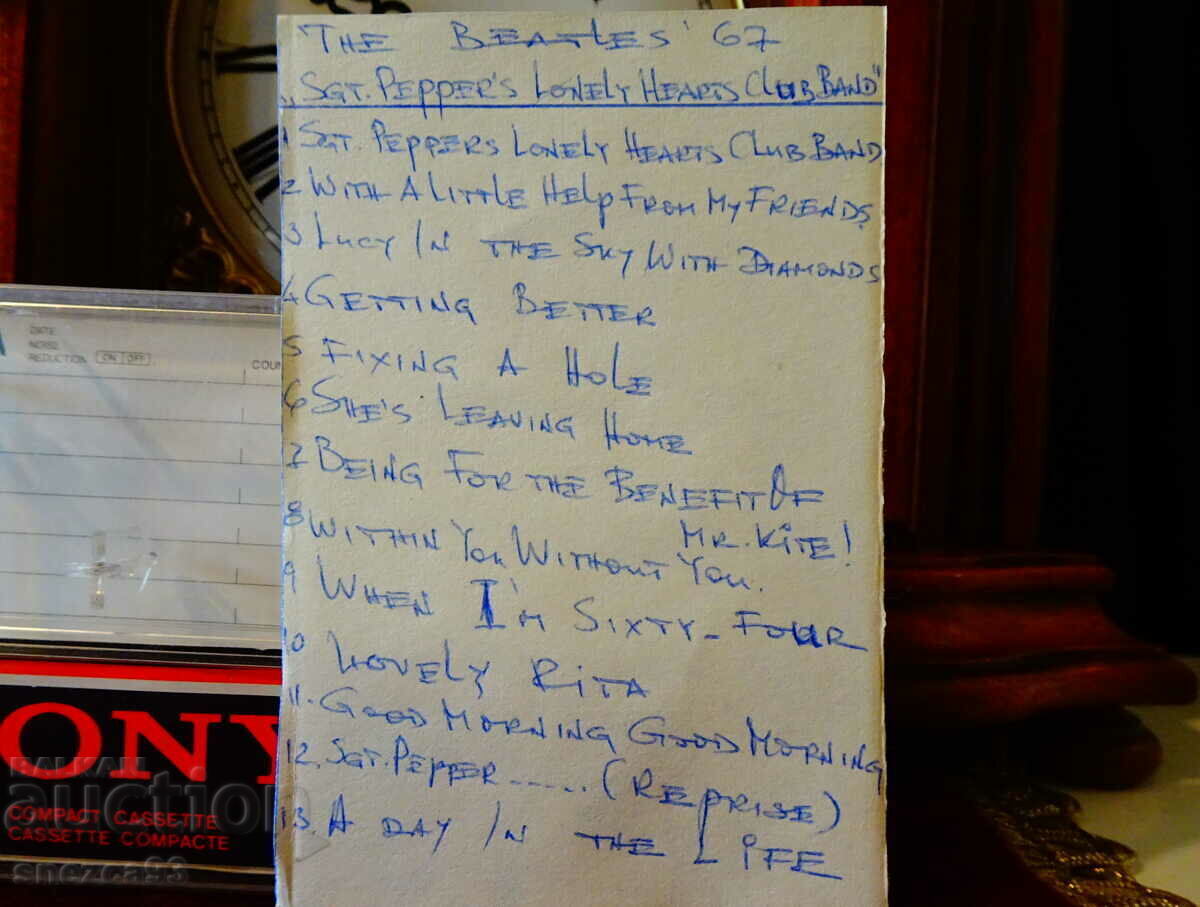 THE BEATLES '67
„SGT. PEPPER'S LONELY HEARTS CLUB BAND"
1 SGT. PEPPERS LONELY HEARTS CLUB BAND
2 WITH A LITTLE HELP FROM MY FRIENDS
3 LUCY IN THE SKY WITH DIAMONDS
4 GETTING BETTER
5 FIXING A HOLE
6 SHE'S LEAVING HOME
7 BEING FOR THE BENEFIT OF
MR. KITE!
8 WITHIN YOU WITHOUT YOU.
9 WHEN I'M SIXTY-FOUR
10 LOVELY RITA
11. GOOD MORNING GOOD MORNING
12. SGT. PEPPER ...... (REPRISE)
13. A DAY IN THE LIFE
DATE
NOISE
REDUCTION ON OFF
COUN
ONY
COMPACT CASSETTE
CASSETTE COMPACTE
BALKAN
auction
snezca93